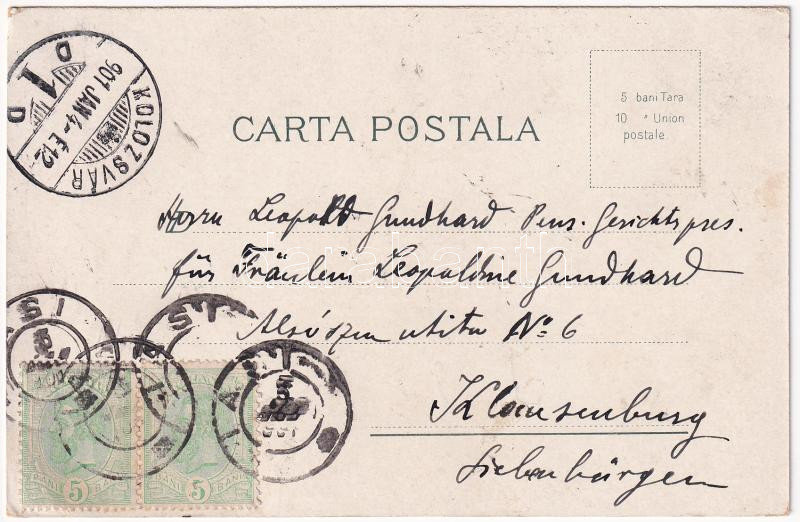 KOLOZSVÁR
901 JAN 4 - É12
D 1 D
CARTA POSTALA
5 bani Tara
10 " Union
postale.
Herrn Leopold Gundhard Pens. Gerichtspres.
für Fräulein Leopoldine Gundhard
Alsó utitu No 6
Klausenburg
Siebenbürgen
5 BANI 5 BANI